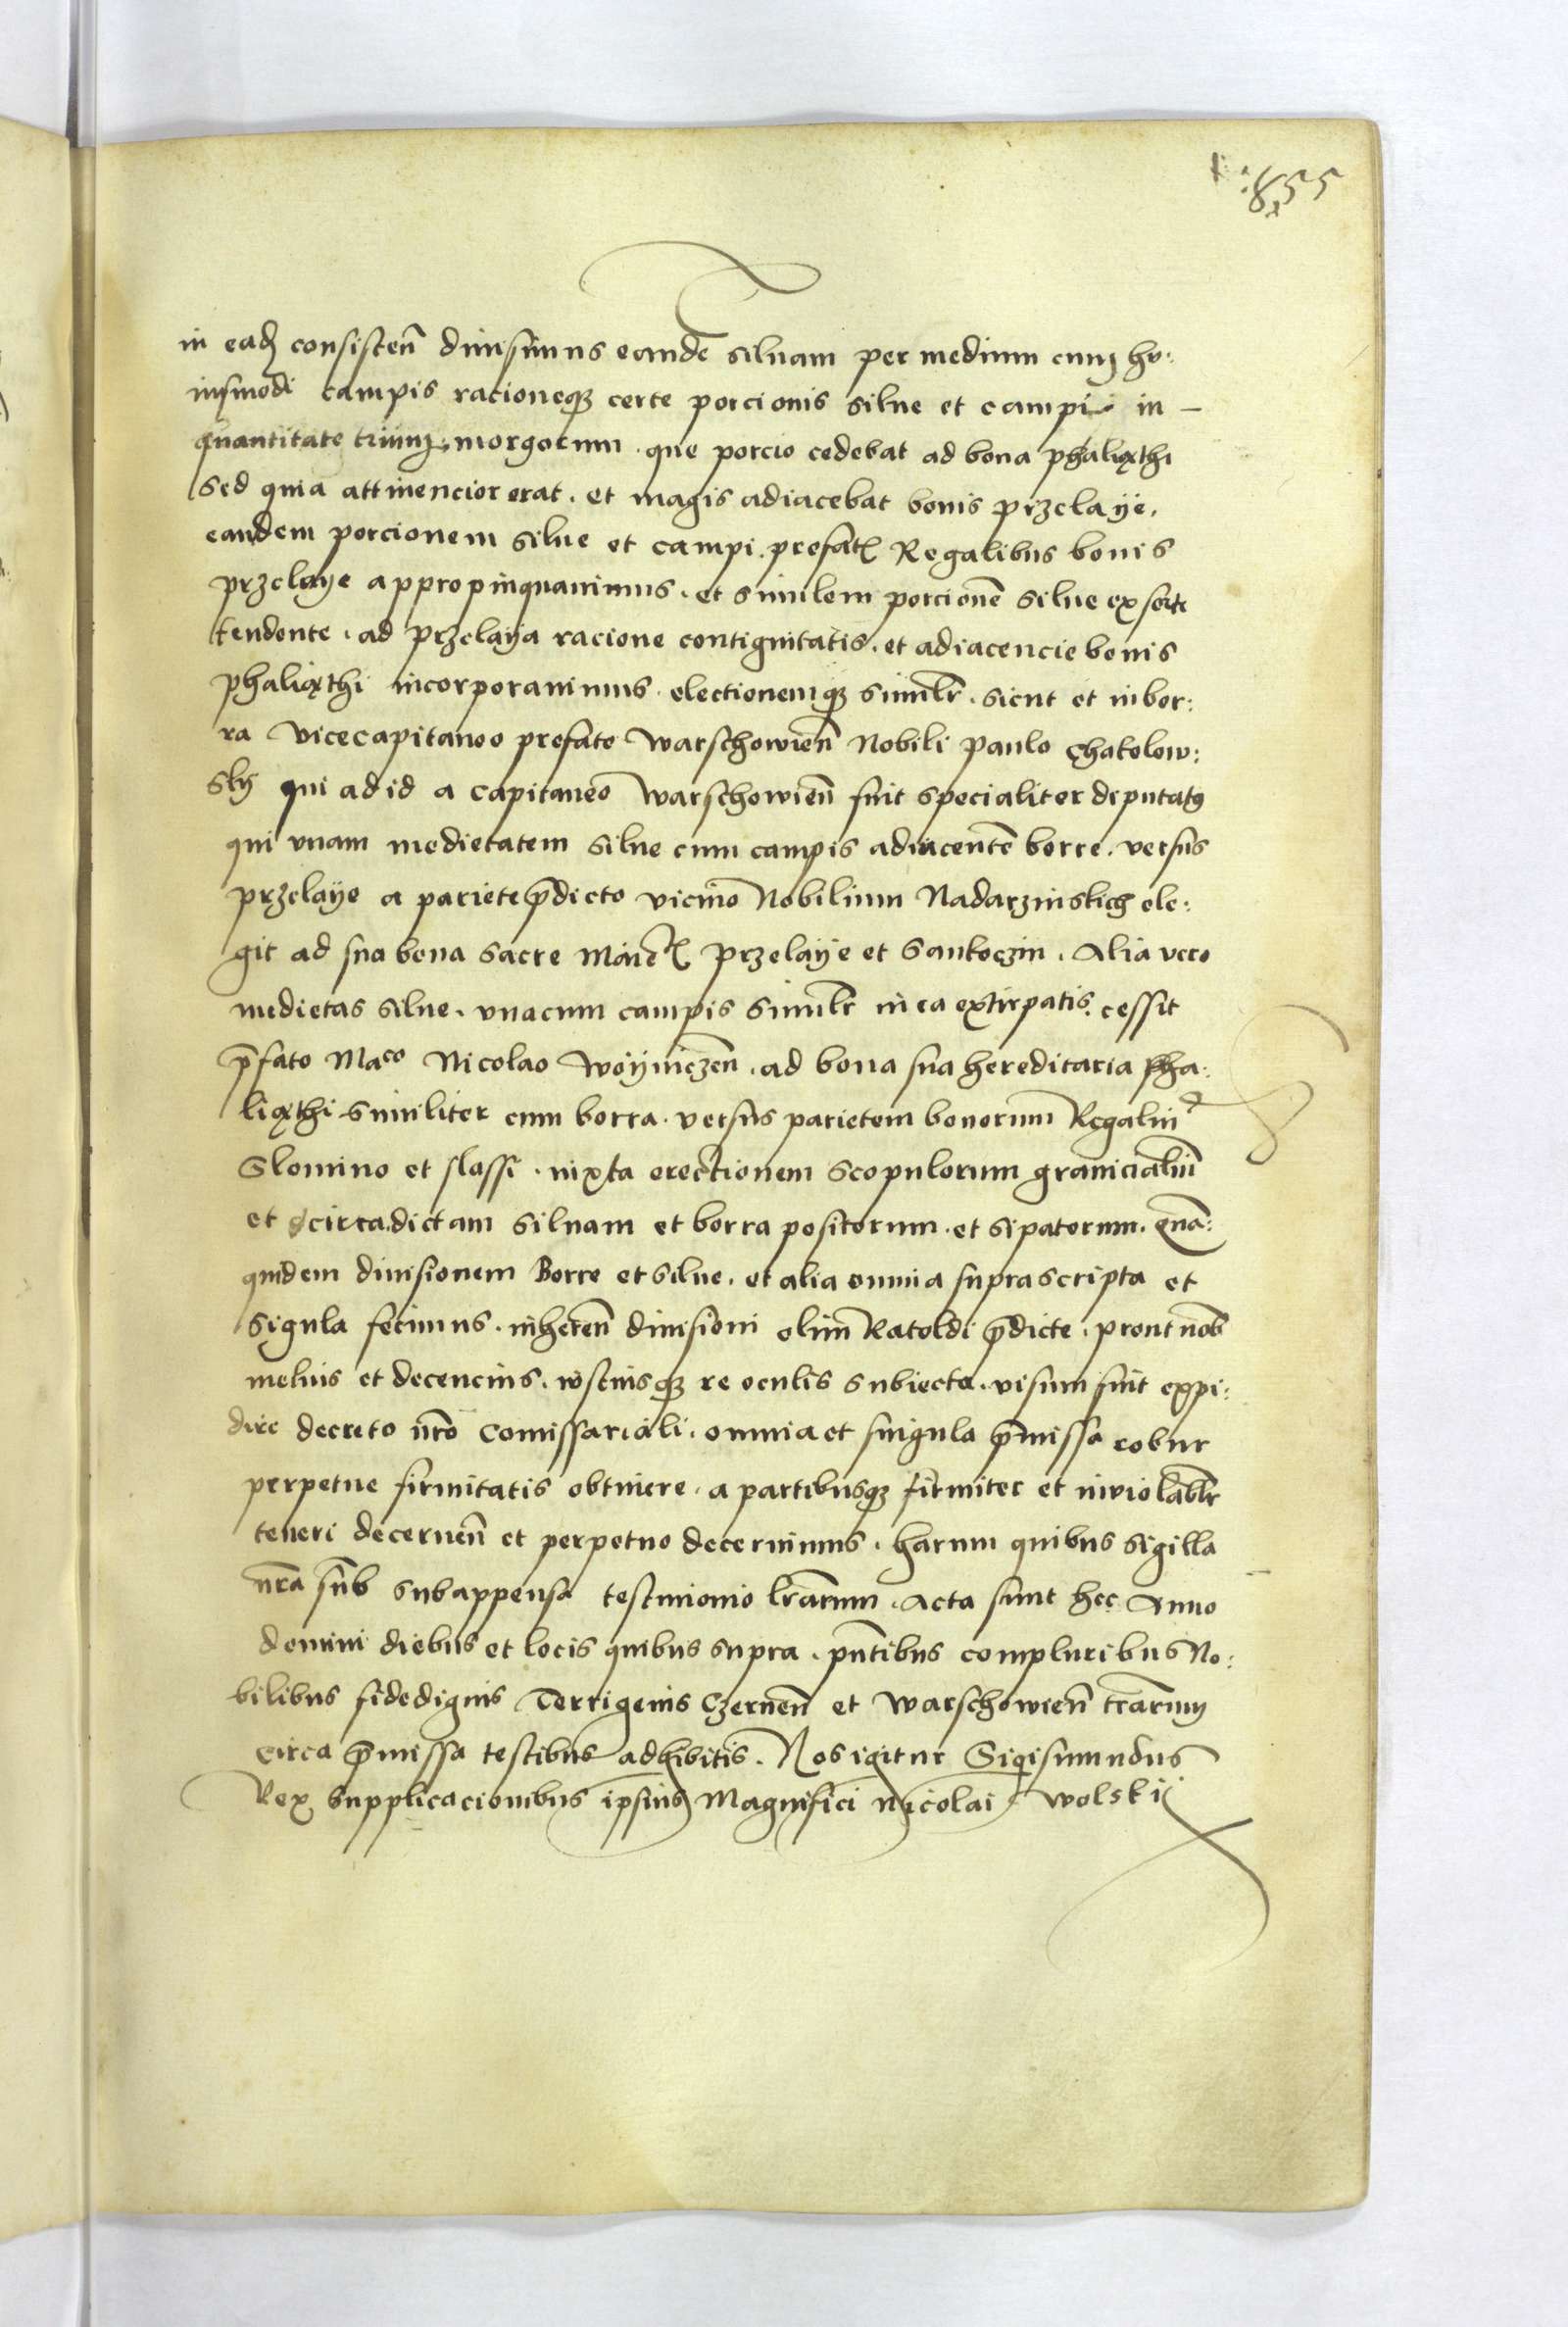 855
in ead consisten̄ diuisimus eandē siluam per medium cum hu:
iusmodi campis racioneqȝ certe porcionis silue et campi in –
quantitate trium morgorum. que porcio cedebat ad bona phalięthi
sed quia attinencior erat. et magis adiacebat bonis przelaÿe.
eandem porcionem silue et campi. prefat Regalibus bonis
przelaye appropinquauimus. et similem porcionē silue ex sorte
tendente. ad przelaÿa racione contiguitatis. et adiacencie bonis
phalięthi incorporauimus. electionemqȝ similr̄. sicut et in bor:
ra vicecapitaneo prefato warschowien̄ Nobili paulo Chatolow:
sky qui ad id a capitaneo warschowien̄ fuit specialiter deputatꝯ
qui vnam medietatem silue cum campis adiacentē borre. versus
przelaÿe a pariete p̄dicto vicino Nobilium Nadarzinskich ele:
git ad sua bona sacre Maiet przelaÿe et Santoczin. Alia vero
medietas silue. vnacum campis similr̄ in ea extirpatis. cessit
p̄fato Maco Nicolao woÿniczen̄. ad bona sua hereditaria pha:
lięthi similiter cum borra. versus parietem bonorum Regaliū
Slomino et slassi. iuxta erectionem scopulorum graniicialiū
et circa dictam siluam et borra positorum. et sipatorum. quā:
quidem diuisionem Borre et silue. et alia omnia suprascripta et
sigula fecimus. inheren̄ diuisioni olim Ratoldi p̄dicte. prout nob̄
melius et decencius. istiusqȝ re oculis subiecta. visum fuit expi:
dire decreto nr̄o comissariali. omnia et singula p̄missa robur
perpetue firmitatis obtinere. a partibusqȝ firmiter et inuiolablr̄
teneri decernen̄ et perpetuo decernimus. harum quibus sigilla
nr̄a sub̄ subappensa testimonio lr̄arum. Acta sunt hec Anno
domini diebus et locis quibus supra. pn̄tibus compluribus No:
bilibus fidedignis Terrigenis Czernen̄ et warschowien̄ tr̄arum
circa p̄missa testibus adhibitis. Nos igitur Sigismundus
Rex supplicacionibus ipsius Magnifici Nicolai wolski